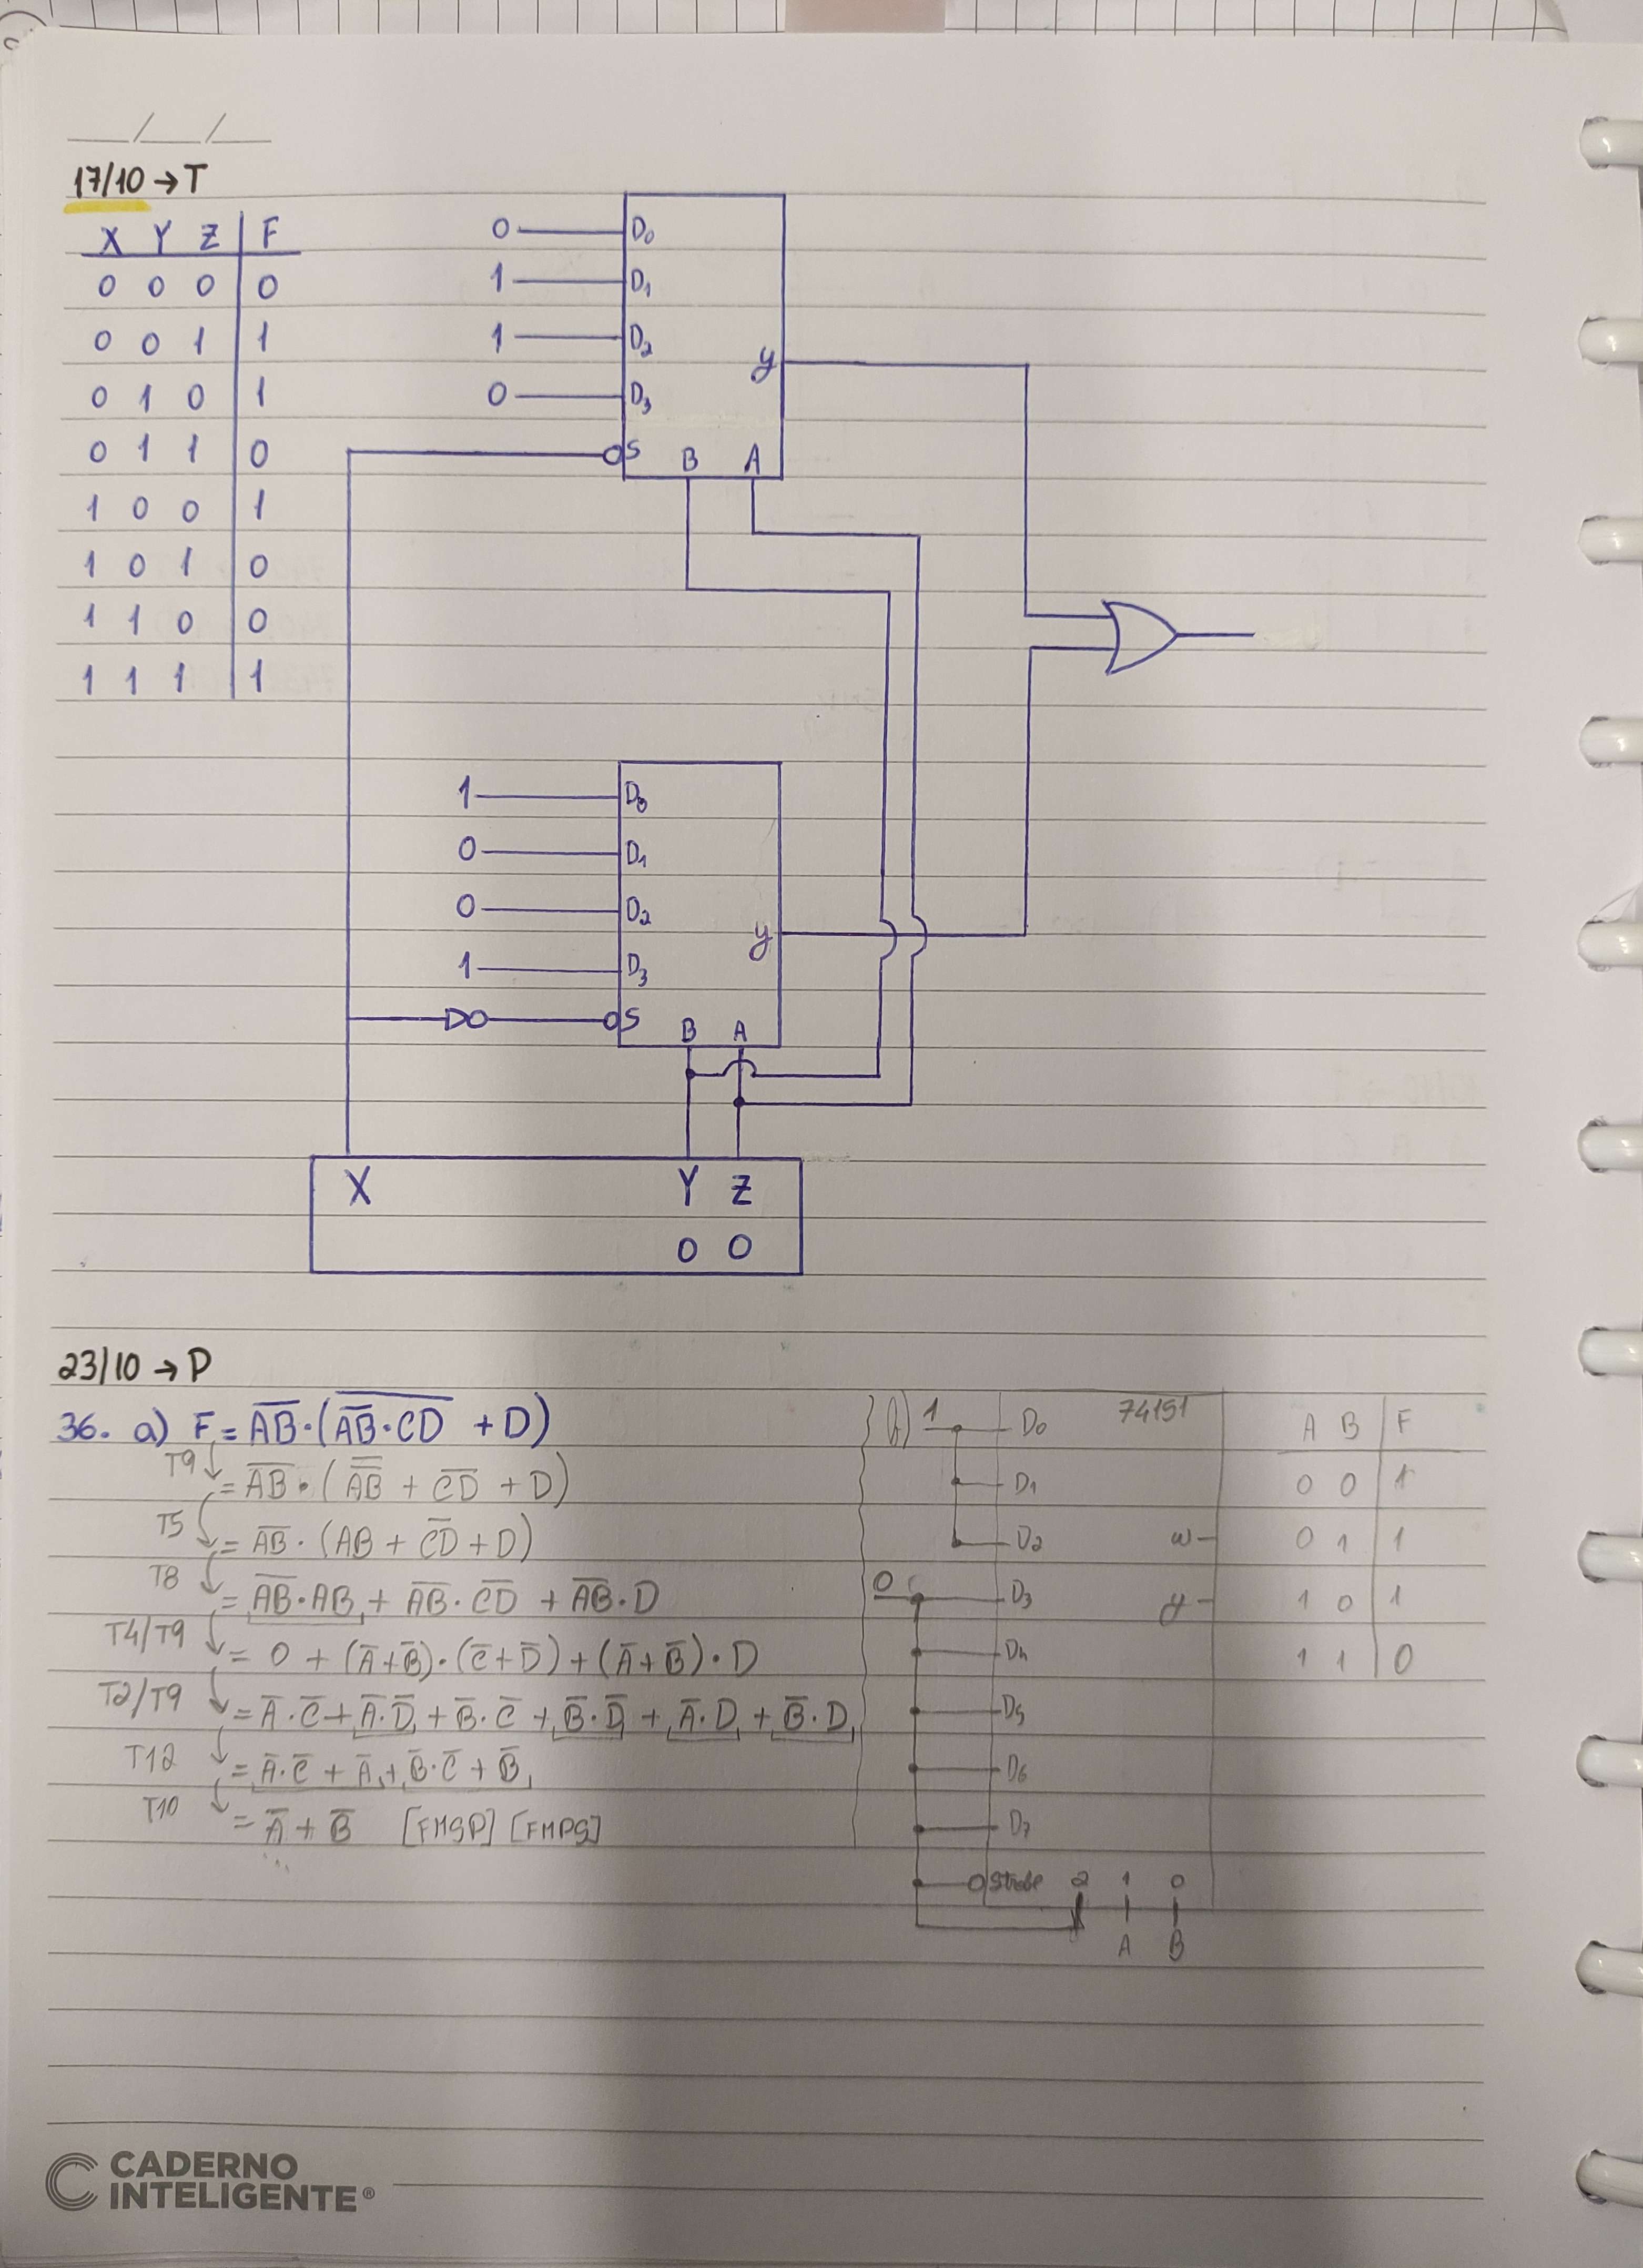 __/__/__
17/10 → T
X Y Z | F
0 0 0 | 0
0 0 1 | 1
0 1 0 | 1
0 1 1 | 0
1 0 0 | 1
1 0 1 | 0
1 1 0 | 0
1 1 1 | 1
0 D₀
1 D₁
1 D₂
y
0 D₃
S B A
1 D₀
0 D₁
0 D₂
y
1 D₃
S B A
X Y Z
0 0
23/10 → P
36. a) F = A̅B̅·(\overline{\overline{AB}·CD} + D)
T9 = \overline{AB}·(\overline{\overline{AB}} + \overline{CD} + D)
T5 = \overline{AB}·(AB + \overline{CD} + D)
T8 = \overline{AB}·AB + \overline{AB}·\overline{CD} + \overline{AB}·D
T4/T9 = 0 + (A̅+B̅)·(C̅+D̅) + (A̅+B̅)·D
T2/T9 = A̅·C̅ + A̅·D̅ + B̅·C̅ + B̅·D̅ + A̅·D + B̅·D
T12 = A̅·C̅ + A̅ + B̅·C̅ + B̅
T10 = A̅ + B̅ [FMSP] [FMPS]
b) 1 D₀ 74151
D₁
D₂ w
0 D₃ y
D₄
D₅
D₆
D₇
Strobe 2 1 0
A B
A B | F
0 0 | 1
0 1 | 1
1 0 | 1
1 1 | 0
CADERNO
INTELIGENTE®